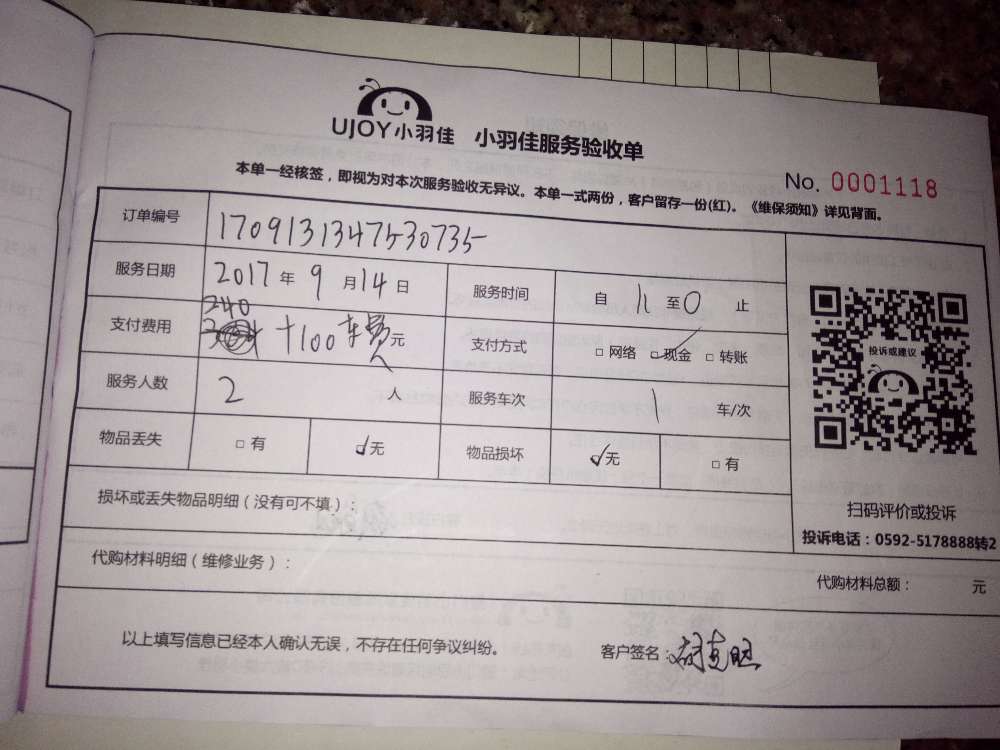 UJOY小羽佳 小羽佳服务验收单
No. 0001118
本单一经核签，即视为对本次服务验收无异议。本单一式两份，客户留存一份(红)。《维保须知》详见背面。
订单编号 1709131347530735
服务日期 2017年9月14日 服务时间 自 11 至 0 止
340
支付费用 +100车费元 支付方式 □网络 □现金 □转账
服务人数 2 人 服务车次 1 车/次
物品丢失 □有 □无 物品损坏 □无 □有
投诉或建议
扫码评价或投诉
投诉电话：0592-5178888转2
损坏或丢失物品明细（没有可不填）：
代购材料明细（维修业务）：
代购材料总额： 元
以上填写信息已经本人确认无误，不存在任何争议纠纷。 客户签名：